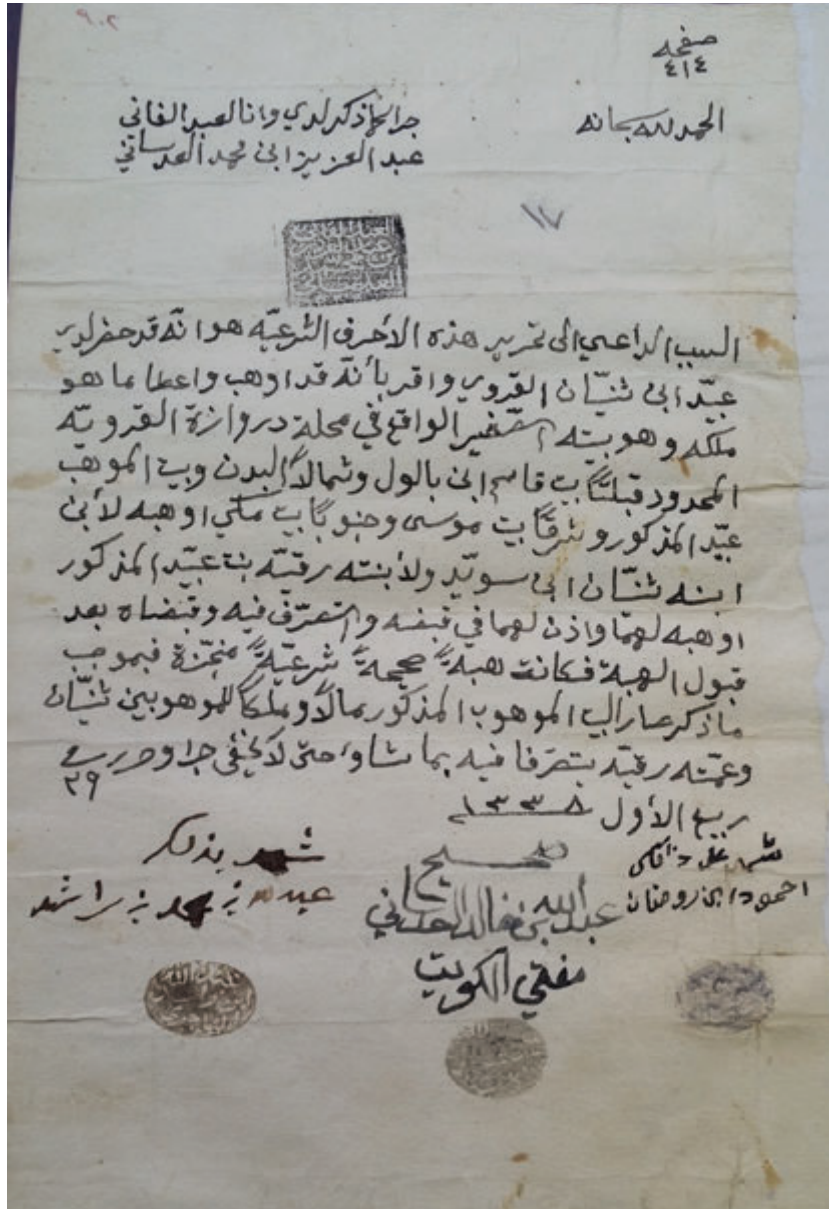 ٩٠٢
صفحه
٤١٤
الحمد لله سبحانه
جرا كما ذكر لدي وانا العبد الفاني
عبد العزيز ابن محمد العدساني
١٧
السبب الداعي الى تحرير هذه الأحرف الشرعيّه هو انّه قد حضر لدي
عبيّد ابن ثنيّان القروي واقر بأنّه قد اوهب واعطا ما هو
ملكه وهو بيته الصّغير الواقع في محلة دروازة القرويّه
المحدود قبلتاً بيت قاسم ابن بالول وشمالاً البدن وبيت الموهب
عبيّد المذكور وشرقاً بيت موسى وجنوباً بيت مكي اوهبه لأبن
ابنه ثنيّان ابن سويّد ولأبنته رقيّه بنت عبيّد المذكور
اوهبه لهما واذن لهما في قبضه والتصرّف فيه وقبضاه بعد
قبول الهبة فكانت هبةً صحيحةً شرعيّةً منجّزة فبموجب
ما ذكر صار البيت الموهوب المذكور مالاً وملكاً للموهوبين ثنيّان
وعمّته رقيّه يتصرّفا فيه بما شاوا حتى لا يخفى جرا وحرر في
٢٩
ربيع الأول ١٣٣٨
شهد على ذالك
احمود ابن رمضان
صحيح
عبد الله بن خالد العدساني
مفتي الكويت
شهد بذلك
عبد الله بن محمد بن راشد